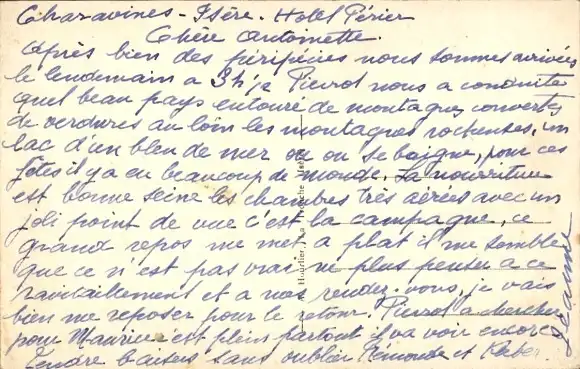 Charavines - Isère. Hotel Périer
Chère Antoinette.
Après bien des péripéties nous sommes arrivées
le lendemain a 3h ½ Pierrot nous a conduite
quel beau pays entouré de montagnes couvertes
de verdures au loin les montagnes rocheuses, un
lac d'un bleu de mer ou on se baigne, pour ces
fêtes il y a eu beaucoup de monde. La nourriture
est bonne seine les chambres très aérées avec un
joli point de vue c'est la campagne, ce
grand repos me met a plat il me semble
que ce n'est pas vrai ne plus penser a ce
ravitaillement et a nos rendez-vous, je vais
bien me reposer pour le retour. Pierrot a chercher
pour Maurice c'est plein partout il va voir encore
Tendre baisers sans oublier Rémonde et Kleber
Jeanne
Hourlier, La Tronche